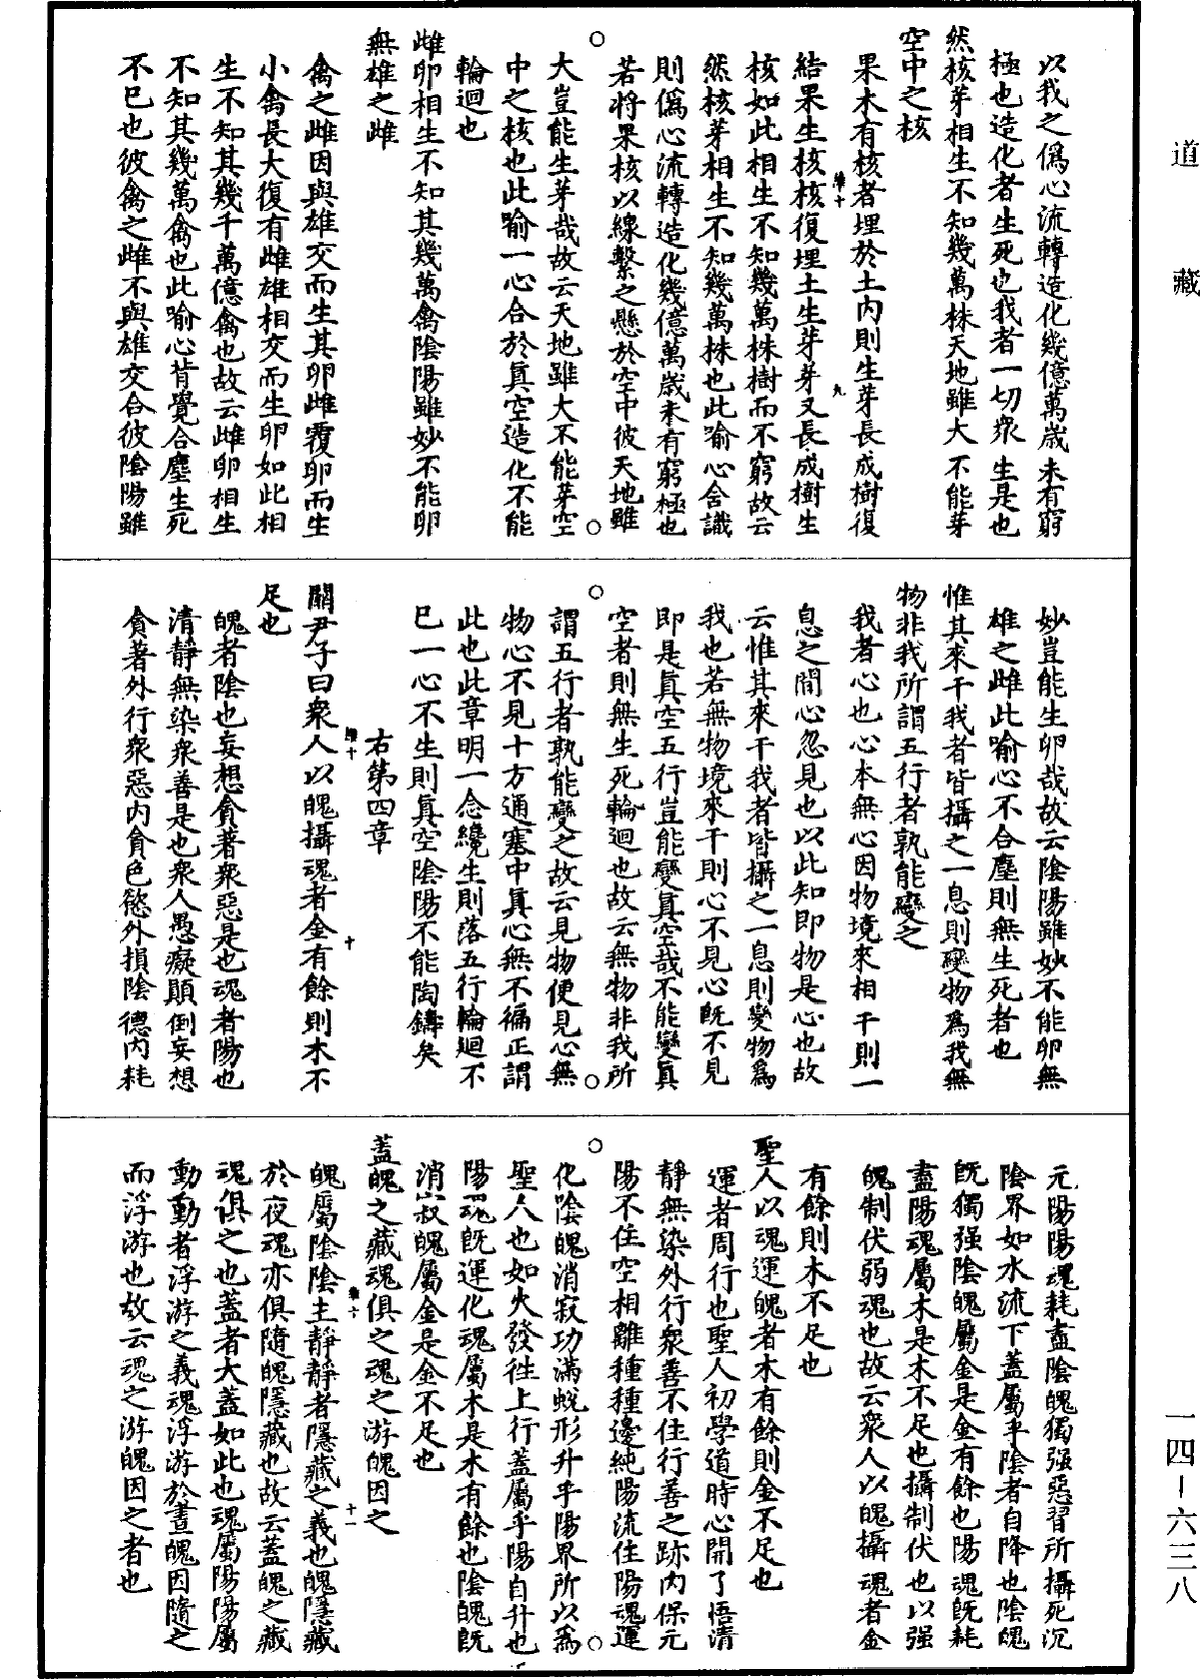 道藏
以我之僞心流轉造化幾億萬歲未有窮
極也造化者生死也我者一切衆生是也
然核芽相生不知幾萬株天地雖大不能芽
空中之核
果木有核者埋於土內則生芽長成樹復
結果生核核復埋土生芽芽又長成樹生
核如此相生不知幾萬株樹而不窮故云
然核芽相生不知幾萬株也此喻心含識
則僞心流轉造化幾億萬歲未有窮極也
若將果核以線繫之懸於空中彼天地雖
大豈能生芽哉故云天地雖大不能芽空
中之核也此喻一心合於眞空造化不能
輪迴也
雌卵相生不知其幾萬禽陰陽雖妙不能卵
無雄之雌
禽之雌因與雄交而生其卵雌覆卵而生
小禽長大復有雌雄相交而生卵如此相
生不知其幾千萬億禽也故云雌卵相生
不知其幾萬禽也此喻心背覺合塵生死
不已也彼禽之雌不與雄交合彼陰陽雖
妙豈能生卵哉故云陰陽雖妙不能卵無
雄之雌此喻心不合塵則無生死者也
惟其來干我者皆攝之一息則變物爲我無
物非我所謂五行者孰能變之
我者心也心本無心因物境來相干則一
息之間心忽見也以此知即物是心也故
云惟其來干我者皆攝之一息則變物爲
我也若無物境來干則心不見心旣不見
即是眞空五行豈能變眞空哉不能變眞
空者則無生死輪迴也故云無物非我所
謂五行者孰能變之故云見物便見心無
物心不見十方通塞中眞心無不徧正謂
此也此章明一念纔生則落五行輪迴不
已一心不生則眞空陰陽不能陶鑄矣
右第四章
關尹子曰衆人以魄攝魂者金有餘則木不
足也
魄者陰也妄想貪著衆惡是也魂者陽也
清靜無染衆善是也衆人愚癡顚倒妄想
貪著外行衆惡內貪色慾外損陰德內耗
元陽陽魂耗盡陰魄獨强惡習所攝死沉
陰界如水流下蓋屬乎陰者自降也陰魄
旣獨强陰魄屬金是金有餘也陽魂旣耗
盡陽魂屬木是木不足也攝制伏也以强
魄制伏弱魂也故云衆人以魄攝魂者金
有餘則木不足也
聖人以魂運魄者木有餘則金不足也
運者周行也聖人初學道時心開了悟清
靜無染外行衆善不住行善之跡內保元
陽不住空相離種種邊純陽流住陽魂運
化陰魄消寂功滿蛻形升乎陽界所以爲
聖人也如火發往上行蓋屬乎陽自升也
陽魂旣運化魂屬木是木有餘也陰魄旣
消寂魄屬金是金不足也
蓋魄之藏魂俱之魂之游魄因之
魄屬陰陰主靜靜者隱藏之義也魄隱藏
於夜魂亦俱隨魄隱藏也故云蓋魄之藏
魂俱之也蓋者大蓋如此也魂屬陽陽屬
動動者浮游之義魂浮游於晝魄因隨之
而浮游也故云魂之游魄因之者也
一四-六三八